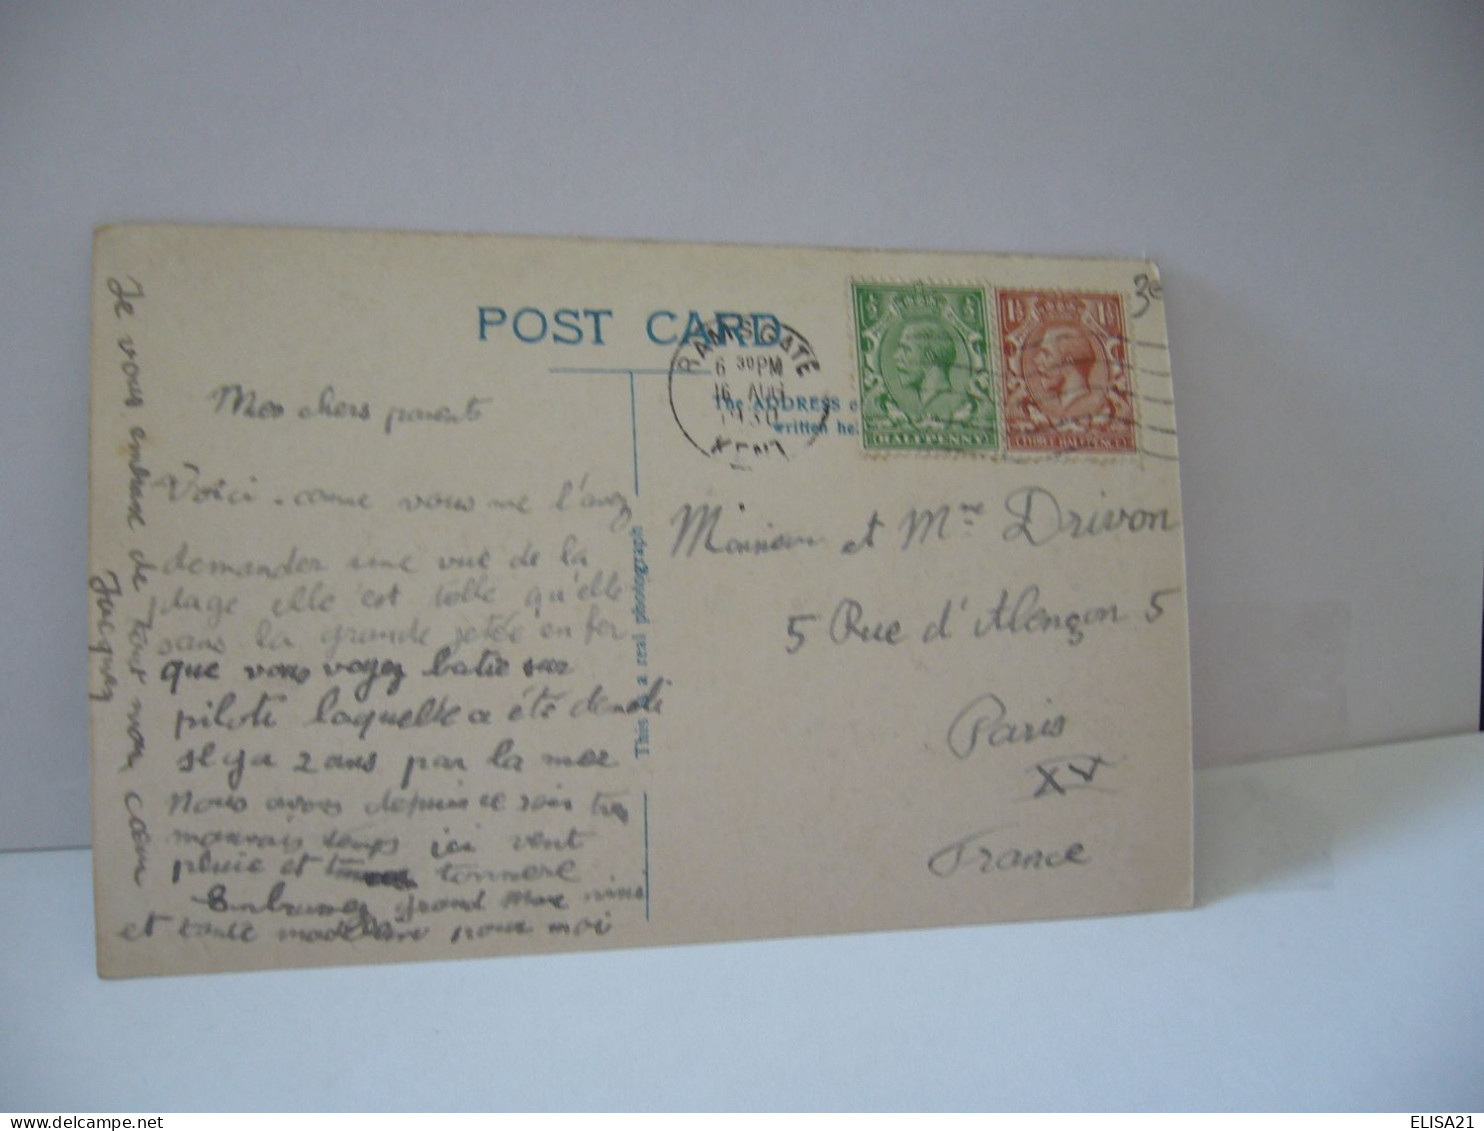 POST CARD
RAMSGATE
6 30 PM
16 AUG
1930
KENT
The ADDRESS
written he
HALFPENNY
THREE HALFPENCE
3e
Mes chers parents
Voici comme vous me l'avez
demander une vue de la
plage elle est telle qu'elle
sans la grande jetée en fer
que vous voyez batie sur
piloti laquelle a été démoli
il y a 2 ans par la mer
Nous avons depuis ce soir tres
mauvais temps ici vent
pluie et tonnere
Embrassez grand mere nini
et tante madeleine pour moi
Je vous embrasse de tout mon cœur
Jacques
This is a real photograph
Monsieur et Mme Drivon
5 Rue d'Alençon 5
Paris
XV
France
ELISA21